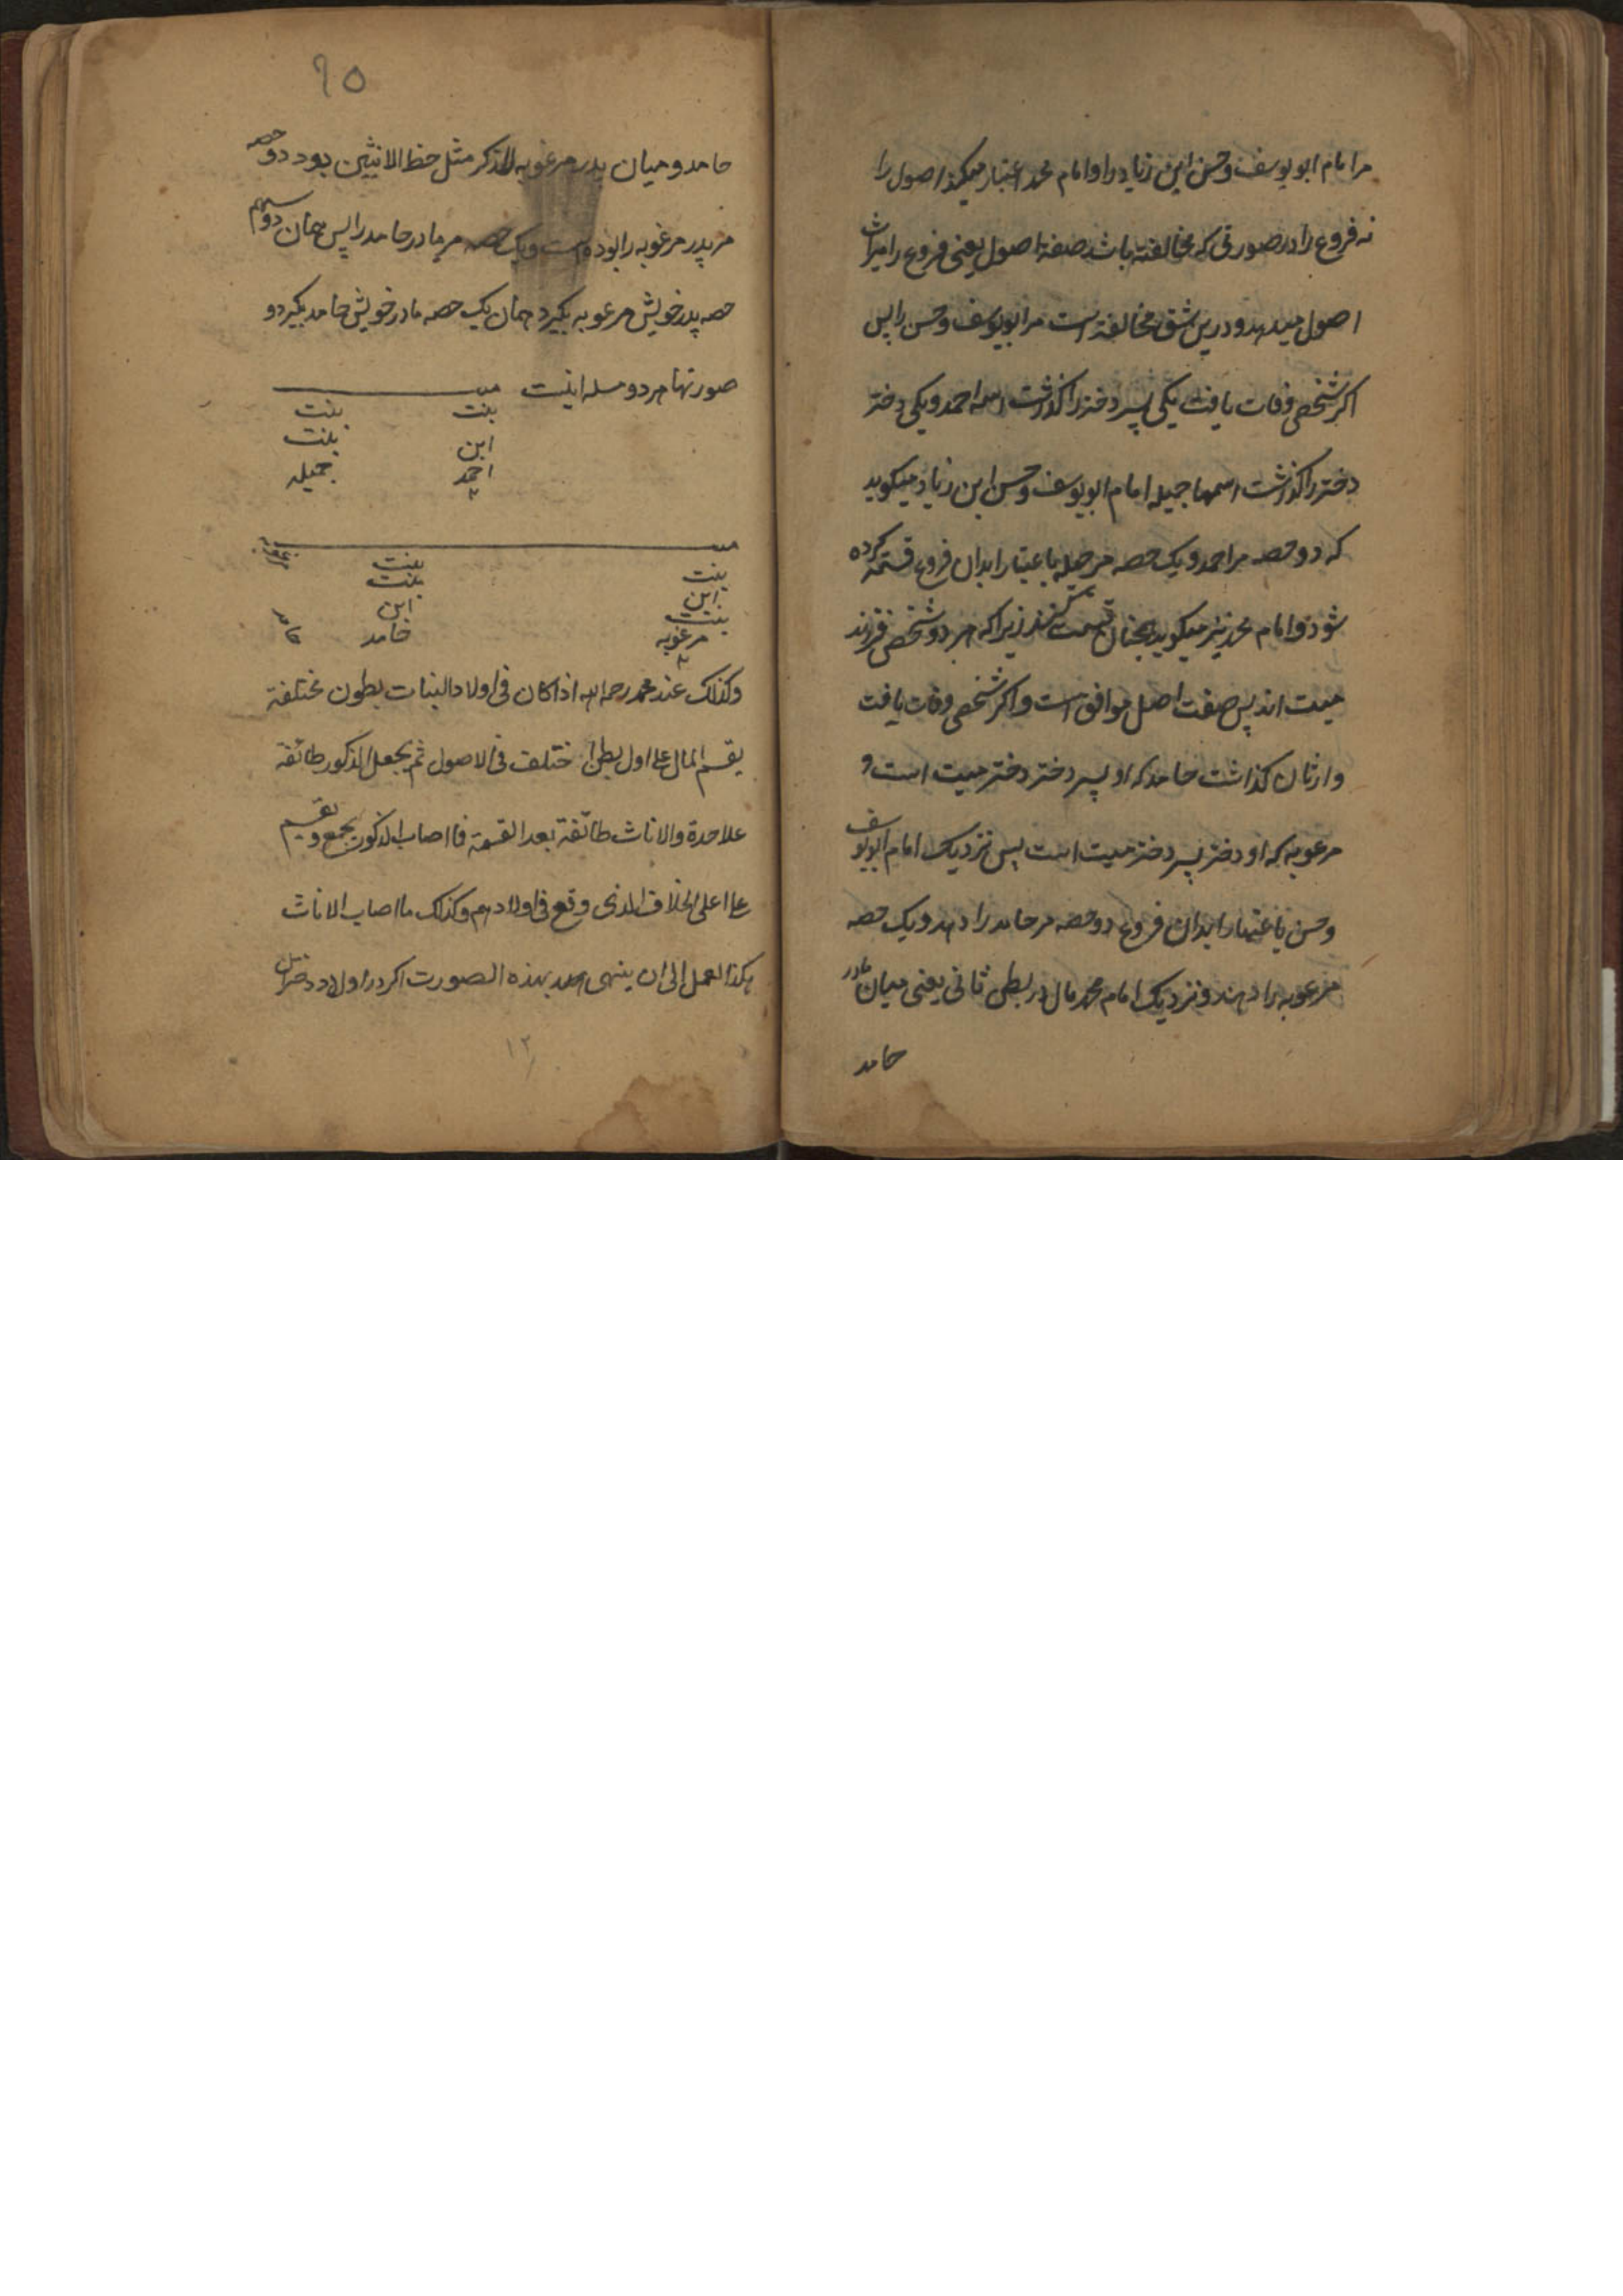 مر امام ابو یوسف و حسن ابن زیاد را و امام محمد اعتبار میکند اصول را
نه فروع را در صورتی که مخالفته باشد صفة اصول یعنی فروع را میراث
اصول میدهد و درین شق مخالفة است مر ابویوسف و حسن را پس
اکر شخصی وفات یافت یکی پسر دختر را کذاشت اسمه احمد و یکی دختر
دختر را کذاشت اسمها جمیله امام ابویوسف و حسن ابن زیاد میکوید
که دو حصه مر احمد و یک حصه مر جمیله باعتبار ابدان فروع قسمة کرده
شود و امام محمد نیز میکوید همچنان قسمت کنند زیرا که هر دو شخص فرزند
میت اند پس صفت اصل موافق است و اکر شخصی وفات یافت
وارثان کذاشت حامد که او پسر دختر دختر میت است و
مرغوبه که او دختر پسر دختر میت است پس نزدیک امام ابویوسف
و حسن باعتبار ابدان فروع دو حصه مر حامد را دهد و یک حصه
مرغوبه را دهند و نزدیک امام محمد مال در بطن ثانی یعنی میان مادر
حامد
۶۵
حامد و میان پدر مرغوبه للذکر مثل حظ الانثیین بود دو حصه
مر پدر مرغوبه را بوده است و یک حصه مر مادر حامد را پس همان دو سهم
حصه پدر خویش مرغوبه بکیرد همان یک حصه مادر خویش حامد بکیرد و
صورتها هر دو مسله اینست میـــت
بنت بنت
ابن بنت
احمد جمیله
۲
میـــت
بنت بنت
ابن بنت
بنت ابن
مرغوبه حامد
۲
وکذلک عند محمد رحمه الله اذا کان فی اولاد البنات بطون مختلفة
یقسم المال علی اول بطن اختلف فی الاصول ثم یجعل الذکور طائفة
علاحدة والاناث طائفة بعد القسمة فما اصاب الذکور یجمع و یقسم
علی اعلی الخلاف الذی وقع فی اولادهم وکذلک ما اصاب الاناث
هکذا العمل الی ان ینتهی بهذه الصورت اکر در اولاد دختران
۱۲